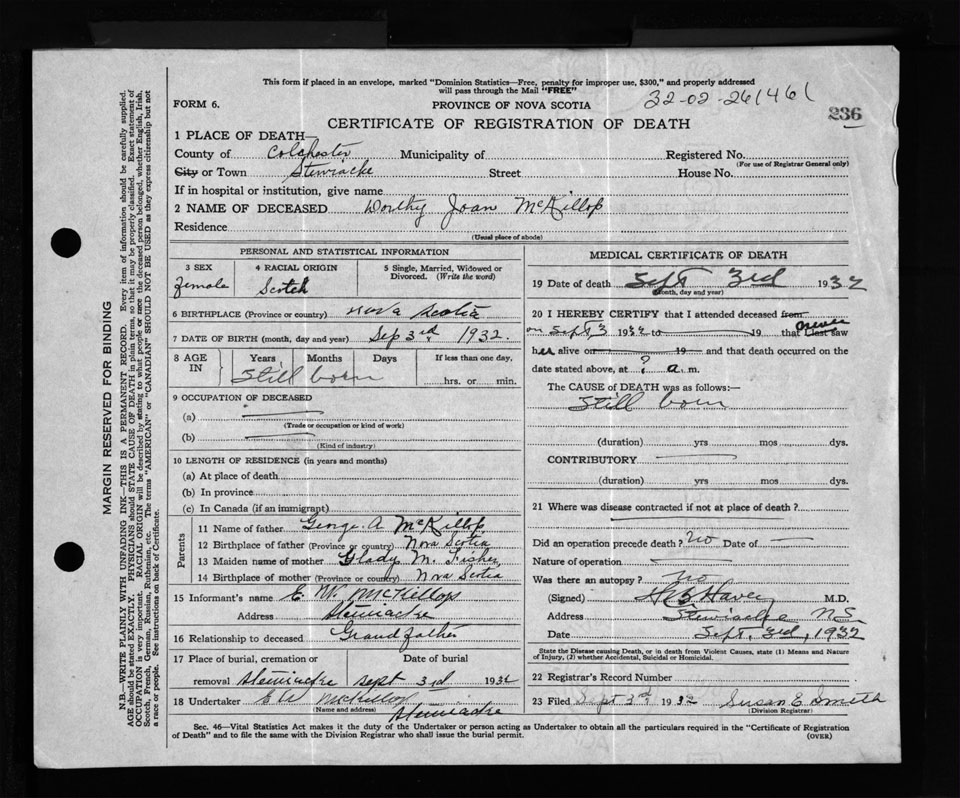 This form if placed in an envelope, marked "Dominion Statistics—Free, penalty for improper use, $300," and properly addressed
will pass through the Mail "FREE"
32-02-261461
FORM 6.
PROVINCE OF NOVA SCOTIA
236
CERTIFICATE OF REGISTRATION OF DEATH
1 PLACE OF DEATH—
County of Colchester Municipality of Registered No.
(For use of Registrar General only)
City or Town Stewiacke Street House No.
If in hospital or institution, give name
2 NAME OF DECEASED Dorthy Joan McKillop
Residence
(Usual place of abode)
PERSONAL AND STATISTICAL INFORMATION
3 SEX 4 RACIAL ORIGIN 5 Single, Married, Widowed or Divorced. (Write the word)
female Scotch
6 BIRTHPLACE (Province or country) Nova Scotia
7 DATE OF BIRTH (month, day and year) Sep 3rd 1932.
8 AGE IN Years Months Days If less than one day,
Still born hrs. or min.
9 OCCUPATION OF DECEASED
(a)
(Trade or occupation or kind of work)
(b)
(Kind of industry)
10 LENGTH OF RESIDENCE (in years and months)
(a) At place of death
(b) In province
(c) In Canada (if an immigrant)
Parents
11 Name of father George. A McKillop
12 Birthplace of father (Province or country) Nova Scotia
13 Maiden name of mother Glady M. Fisher
14 Birthplace of mother (Province or country) Nova Scotia
15 Informant's name E W McKillop
Address Stewiacke
16 Relationship to deceased Grand father
17 Place of burial, cremation or Date of burial
removal Stewiacke Sept 3rd 1932
18 Undertaker E W McKillop
Stewiacke
(Name and address)
MEDICAL CERTIFICATE OF DEATH
19 Date of death Sept 3rd 1932
(Month, day and year)
20 I HEREBY CERTIFY that I attended deceased from
on Sept 3 1932 to 19 that I last saw never
her alive on 19 and that death occurred on the
date stated above, at ? a. m.
The CAUSE of DEATH was as follows:—
Still born
(duration) yrs mos dys.
CONTRIBUTORY
(duration) yrs mos dys.
21 Where was disease contracted if not at place of death?
Did an operation precede death? no Date of
Nature of operation
Was there an autopsy? no
(Signed) M.D.
Address Stewiacke N.S.
Date Sept. 3rd, 1932
State the Disease causing Death, or in death from Violent Causes, state (1) Means and Nature
of Injury, (2) whether Accidental, Suicidal or Homicidal.
22 Registrar's Record Number
23 Filed Sept 3rd 1932 Susan E Smith
(Division Registrar)
Sec. 46—Vital Statistics Act makes it the duty of the Undertaker or person acting as Undertaker to obtain all the particulars required in the "Certificate of Registration
of Death" and to file the same with the Division Registrar who shall issue the burial permit.
(OVER)
MARGIN RESERVED FOR BINDING
N.B.—WRITE PLAINLY WITH UNFADING INK—THIS IS A PERMANENT RECORD. Every item of information should be carefully supplied.
AGE should be stated EXACTLY. PHYSICIANS should STATE CAUSE OF DEATH in plain terms, so that it may be properly classified. Exact statement of
OCCUPATION is very important. RACIAL ORIGIN will be described by stating to what people or race the deceased person belonged, whether English, Irish,
Scotch, French, German, Russian, Ruthenian, etc. The terms "AMERICAN" or "CANADIAN" SHOULD NOT BE USED as they express citizenship but not
a race or people. See instructions on back of Certificate.